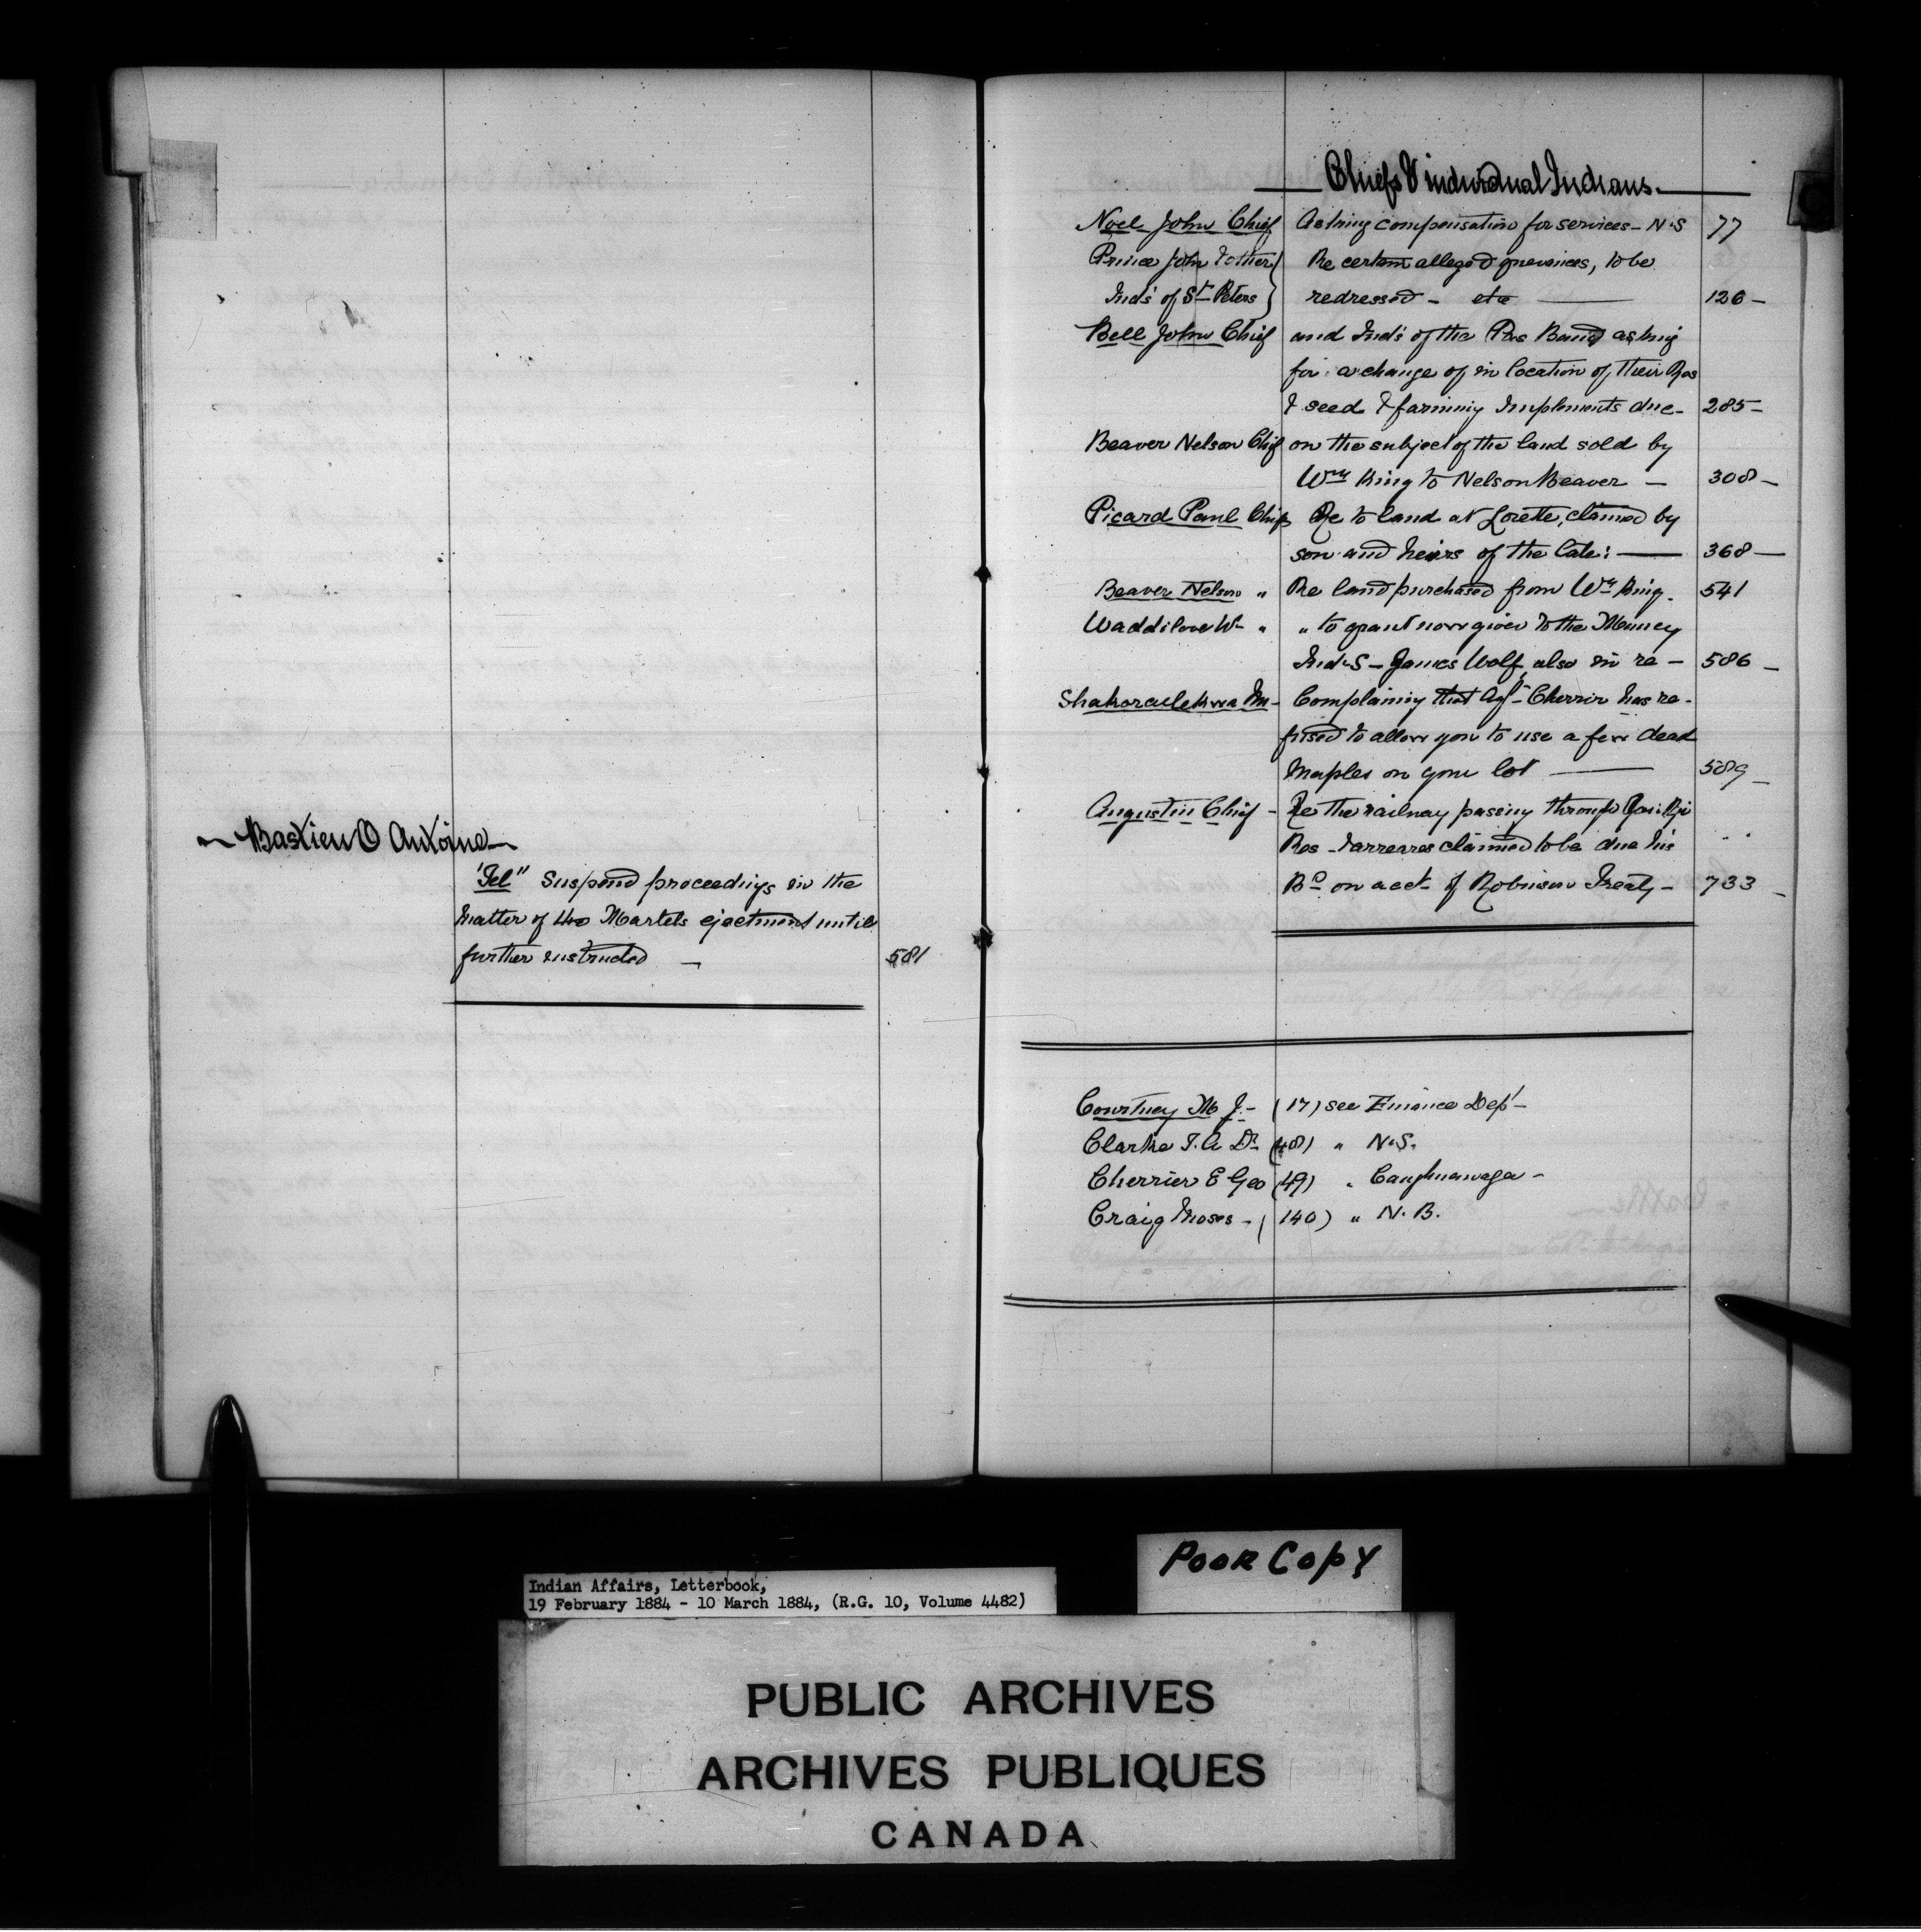 Bastien O Antoine
"Tel" Suspend proceedings in the
matter of Martels ejectment until
further instructed — 581
Chiefs & individual Indians.
Noel John Chief Asking compensation for services - N.S 77
Prince John & other Re certain alleged grievances, to be
Ind's of St Peters redressed - etc 126 -
Bell John Chief and Ind's of the Pas Band asking
for a change of in location of their Res
& seed & farming Implements due - 285 -
Beaver Nelson Chief on the subject of the land sold by
Wm King to Nelson Beaver — 308 -
Picard Paul Chief Re to land at Lorette, claimed by
son and heirs of the late: 368 —
Beaver Nelson " Re land purchased from Wm King. 541
Waddilove Wm " " to grant now given to the Muncey
Inds - James Wolf, also in re - 586 -
Complaining that Agt Cherrier has re-
fused to allow you to use a few dead
Maples on your lot 589 -
Augustin Chief - Re the railway passing through
Res - & arreares claimed to be due his
Bd on acct of Robinson Treaty - 733 -
Courtney M J. - (17) see Finance Dept -
Clarke Dr (48) " N.S.
Cherrier E Geo (49) " Caughnawaga -
Craig Moses - (140) " N.B.
Poor Copy
Indian Affairs, Letterbook,
19 February 1884 - 10 March 1884, (R.G. 10, Volume 4482)
PUBLIC ARCHIVES
ARCHIVES PUBLIQUES
CANADA